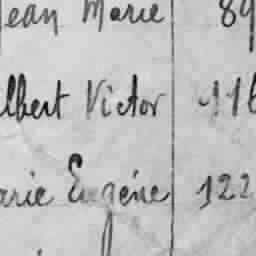 Jean Marie 89
Albert Victor 116
Marie Eugénie 122